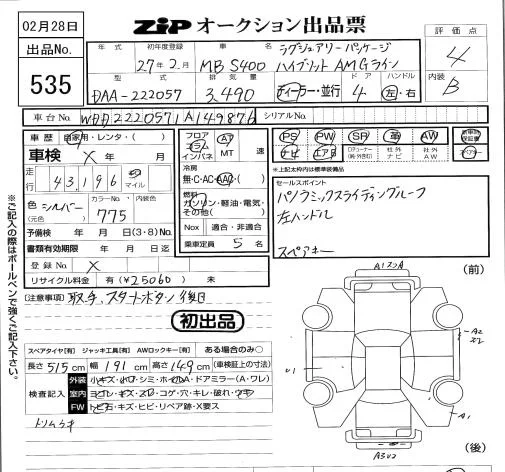 02月28日
ZIP オークション出品票
出品No.
535
年式
初年度登録
27年2月
車名
MB S400
ラグジュアリーパッケージ
ハイブリット AMGライン
評価点
4
内装
B
型式
DAA-222057
排気量
3,490
ディーラー・並行
ドア
4
ハンドル
左・右
車台No.
WDD2220571A149876
シリアルNo.
車歴
自家用・レンタ・( )
車検 X 年 月
走行
43,196
マイル
色
(元色)
シルバー
カラーNo.
775
内装色
予備検 年 月 日(3・8)No.
書類有効期限 年 月 日迄
登録No. X
リサイクル料金 有(¥25060) 未
フロア
コラム
インパネ
AT
MT
速
冷房
無・C・AC・AAC( )
燃料
ガソリン・軽油・電気・
その他( )
Nox 適合・非適合
乗車定員 5 名
PS PW SR 革 AW
ナビ エアB
社外
ナビ
社外
AW
*上記太枠内は標準装備品
セールスポイント
パノラミックスライディングルーフ
左ハンドル
スペアキー
(注意事項) 取、スタートボタン後日
初出品
スペアタイヤ[有] ジャッキ工具[有] AWロックキー[有] ある場合のみ○
長さ 515 cm 幅 191 cm 高さ 149 cm (車検証上の寸法)
検査記入
外装
室内 ヨゴレ・キズ・スレ・コゲ・穴・キレ・破れ・
FW トビ石・キズ・ヒビ・リペア跡・X要ス
トリムキズ
※ご記入の際はボールペンで強くご記入下さい。
(前)
U1
A2
A1
(後)